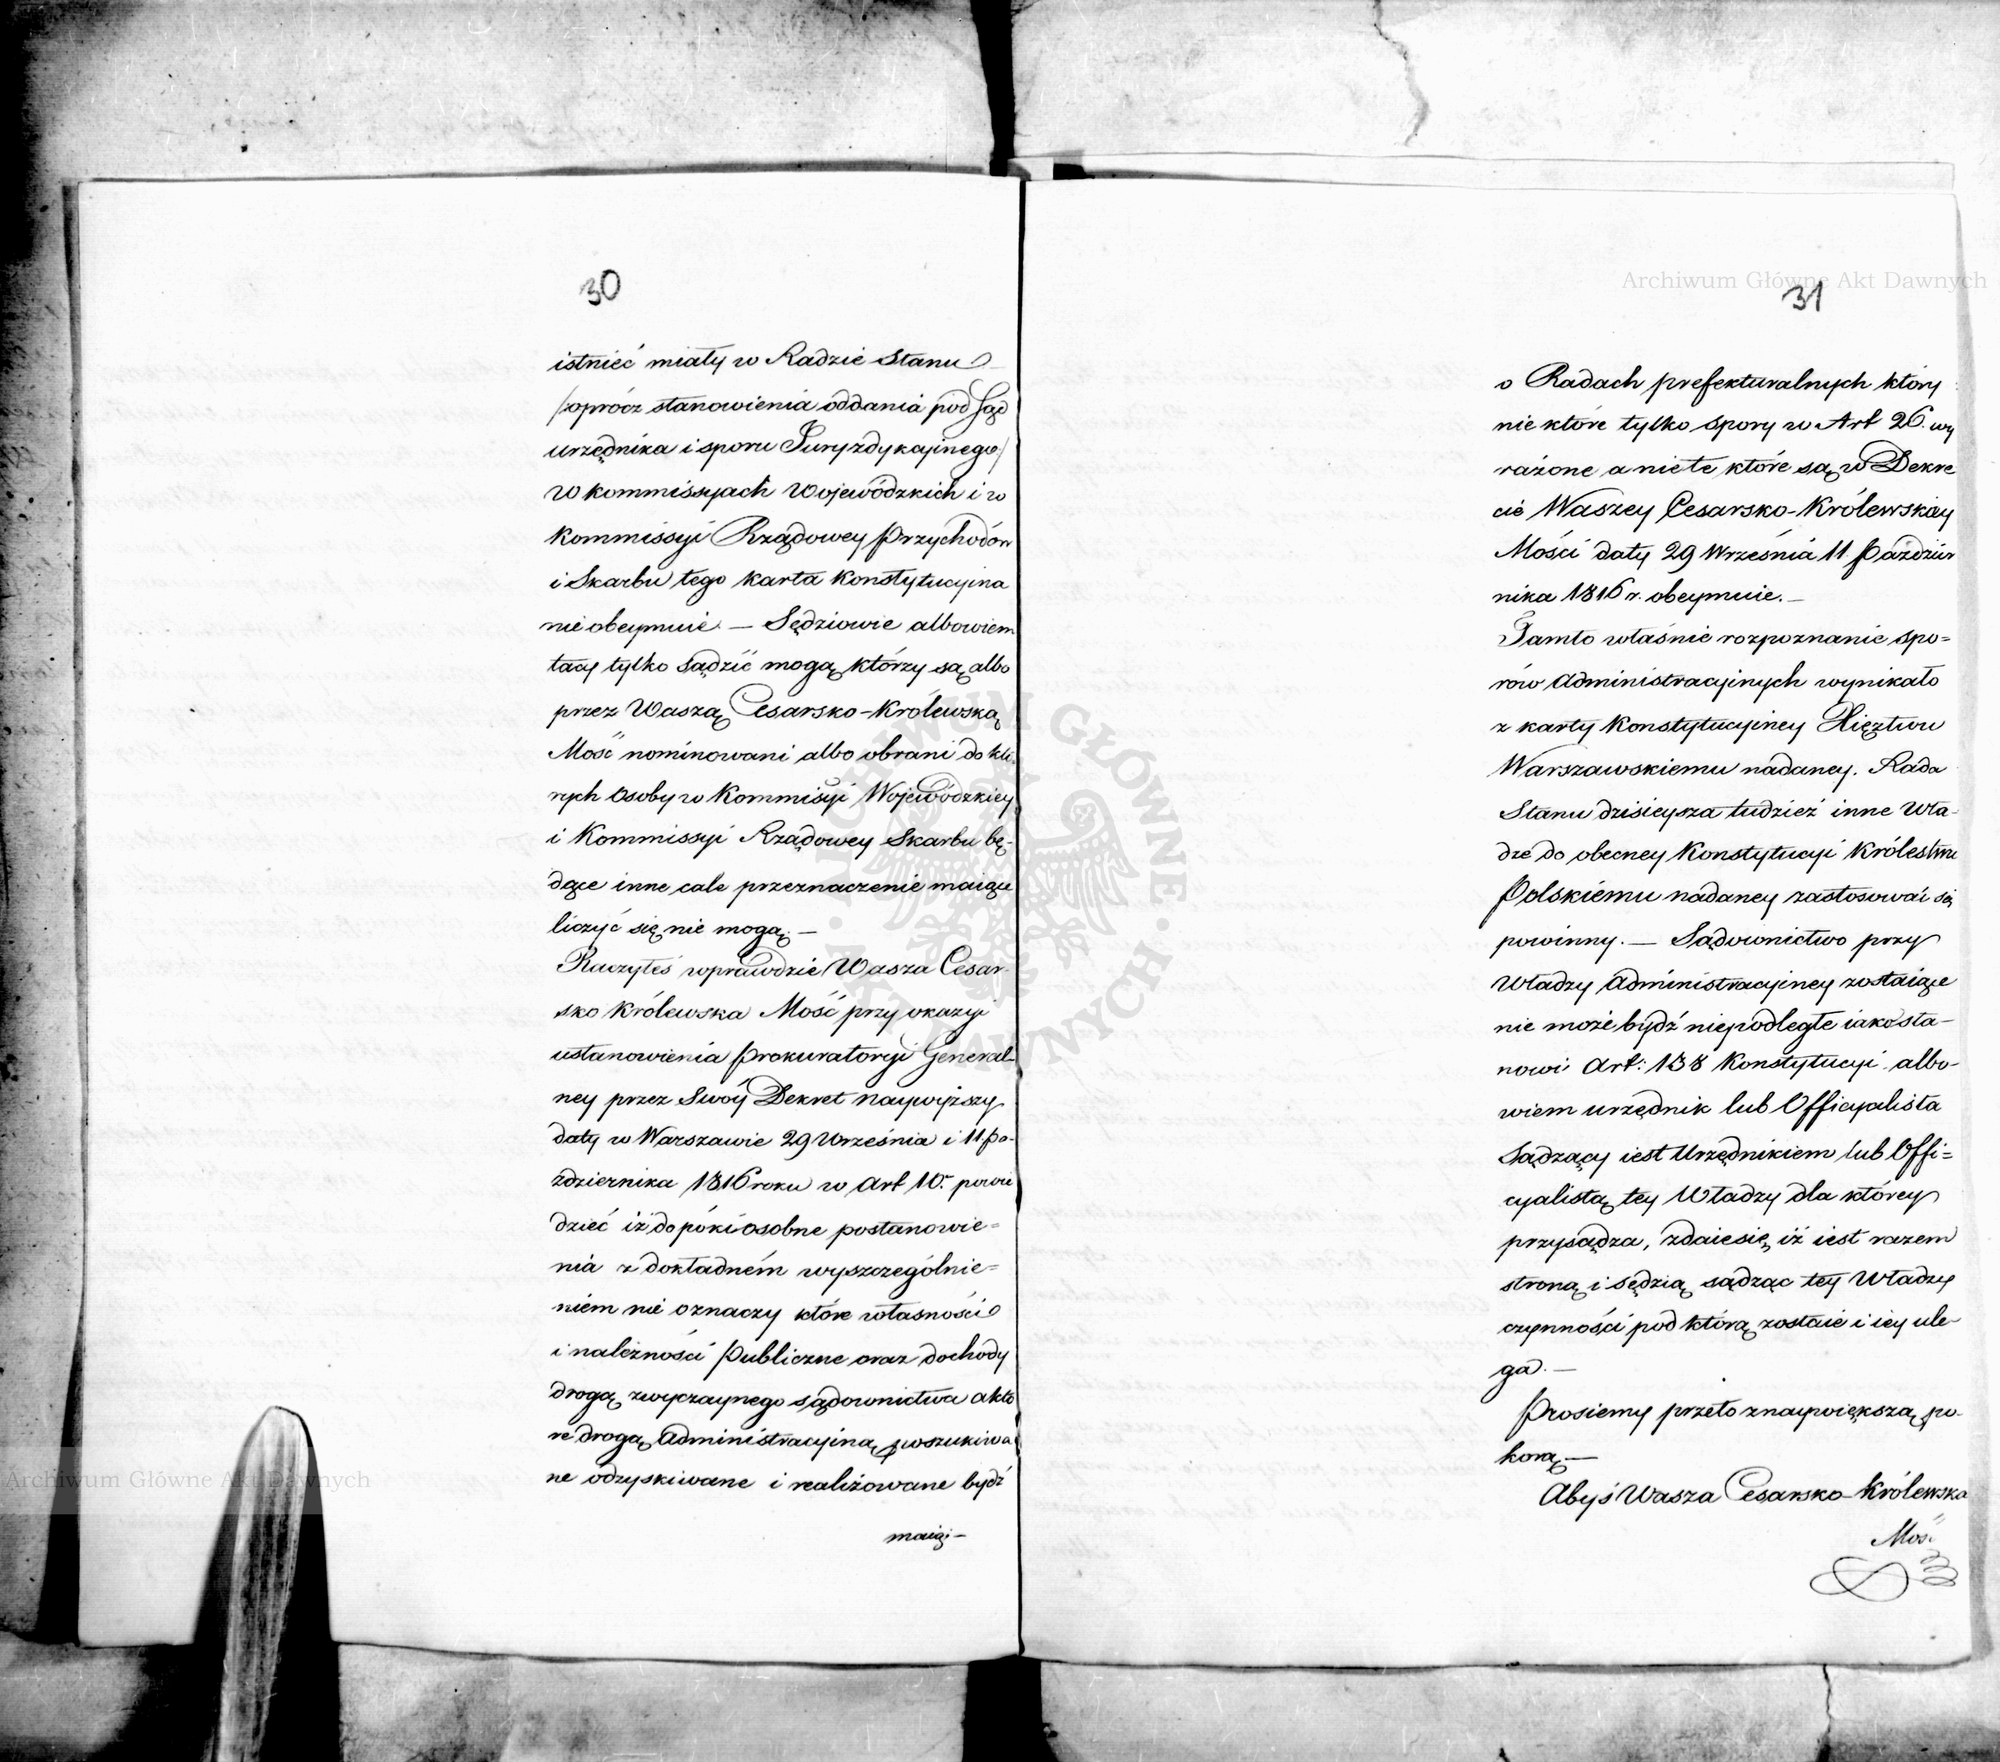 30
istnieć miały w Radzie Stanu
/oprócz stanowienia oddania pod Sąd
urzędnika i sporu Juryzdykcyinego/
w kommissyach Wojewódzkich i w
Kommissyi Rządowey Przychodów
i Skarbu tego karta konstytucyina
nie obeymuie. — Sędziowie albowiem
tacy tylko sądzić mogą którzy są albo
przez Waszą Cesarsko-Królewską
Mość nominowani albo obrani do któ
rych osoby w Kommissyi Wojewódzkiey
i Kommissyi Rządowey Skarbu bę-
dące inne cale przeznaczenie maiące
liczyć się nie mogą. —
Raczyłeś wprawdzie Wasza Cesar-
sko Królewska Mość przy okazyi
ustanowienia Prokuratoryi General-
ney przez Swóy Dekret naywyższy
daty w Warszawie 29 Września i 11 Pa-
ździernika 1816 roku w Art 10. powie
dzieć iż dopóki osobne postanowie=
nia z dokładném wyszczególnie=
niem nie oznaczy które własności
i należności Publiczne oraz dochody
drogą zwyczaynego sądownictwa a któ
re drogą Administracyiną poszukiwa
ne odzyskiwane i realizowane bydź
maią. —
31
o Radach prefekturalnych który
niektóre tylko spory w Art 26. wy
rażone a nie te które są w Dekre
cie Waszey Cesarsko-Królewskiey
Mości daty 29 Września 11 Paździer
nika 1816 r. obeymuie. —
Tamto właśnie rozpoznanie spo=
rów Administracyinych wynikało
z karty Konstytucyiney Xięztwu
Warszawskiemu nadaney. Rada
Stanu dzisieysza tudzież inne Wła-
dze do obecney Konstytucyi Królestwu
Polskiemu nadaney zastosować się
powinny. — Sądownictwo przy
Władzy Administracyiney zostaiące
nie może bydź niepodległe iako sta-
nowi Art: 138 Konstytucyi albo-
wiem urzędnik lub Officyalista
Sądzący iest Urzędnikiem lub Offi=
cyalistą tey Władzy dla którey
przysądza, zdaie się iż iest razem
stroną i sędzią sądząc tey Władzy
czynności pod którą zostaie i iey ule-
ga. —
Prosiemy przeto z naywiększą po-
korą —
Abyś Wasza Cesarsko-Królewska
Mość
Archiwum Główne Akt Dawnych
Archiwum Główne Akt Dawnych
ARCHIWUM GŁÓWNE · AKT DAWNYCH ·